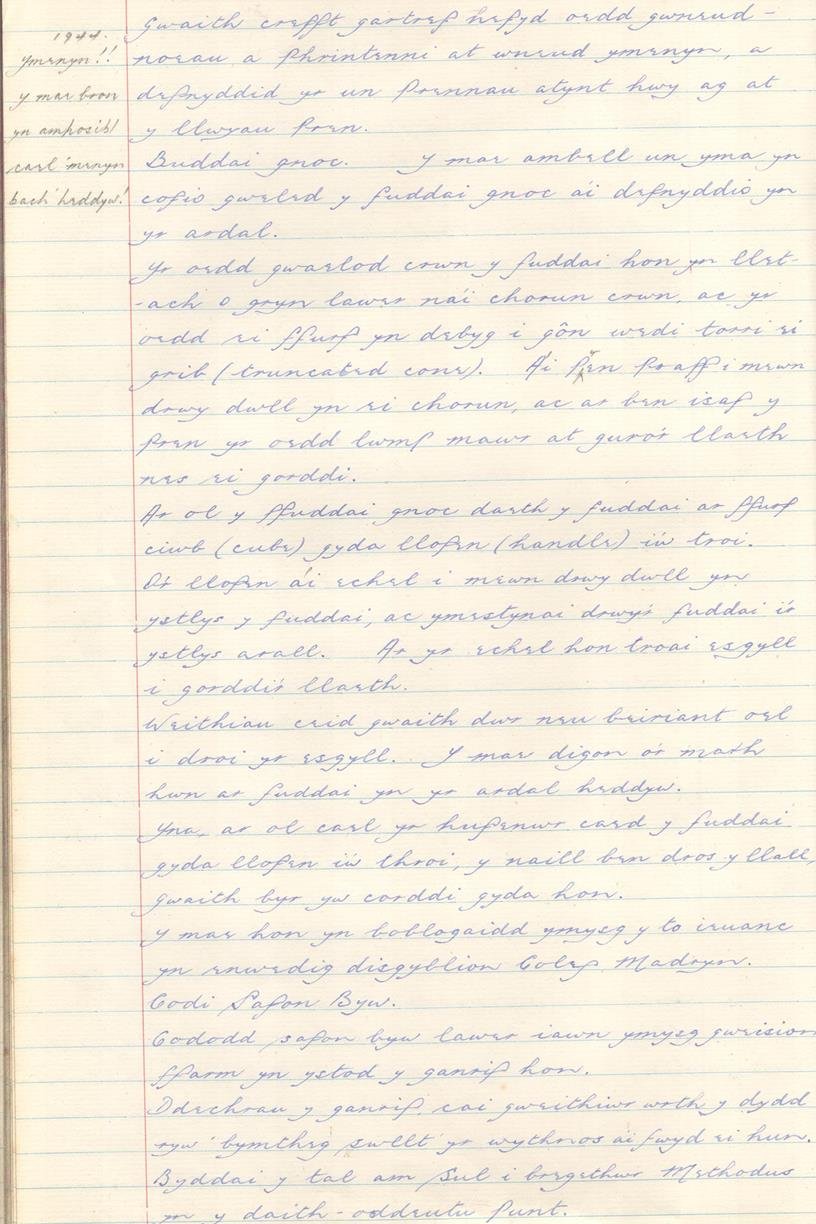 1944.
Ymenyn!!
y mae bron
yn amhosibl
cael 'menyn
bach heddyw!
Gwaith crefft gartref hefyd oedd gwneud-
noeau a phrintenni at wneud ymenyn, a
defnyddid yr un prennau atynt hwy ag at
y llwyau pren.
Buddai gnoc. Y mae ambell un yma yn
cofio gweled y fuddai gnoc a'i defnyddio yn
yr ardal.
Yr oedd gwaelod crwn y fuddai hon yn llet-
-ach o gryn lawer na'i chorun crwn, ac yr
oedd ei ffurf yn debyg i gôn wedi torri ei
grib (truncated cone). A'i phen praff i mewn
drwy dwll yn ei chorun, ac ar ben isaf y
pren yr oedd lwmp mawr at guro'r llaeth
nes ei gorddi.
Ar ol y ffuddai gnoc daeth y fuddai ar ffurf
ciwb (cube) gyda llofen (handle) i'w troi.
O'r llofen a'i echel i mewn drwy dwll yn
ystlys y fuddai, ac ymestynai drwy'r fuddai i'r
ystlys arall. Ar yr echel hon troai esgyll
i gorddi'r llaeth.
Weithiau ceid gwaith dwr neu beiriant oel
i droi yr esgyll. Y mae digon o'r math
hwn ar fuddai yn yr ardal heddyw.
Yna, ar ol cael yr hufenwr caed y fuddai
gyda llofen i'w throi, y naill ben dros y llall,
gwaith byr yw corddi gyda hon.
Y mae hon yn boblogaidd ymysg y to ieuanc
yn enwedig disgyblion Coleg Madryn.
Codi Safon Byw.
Cododd safon byw lawer iawn ymysg gweision
ffarm yn ystod y ganrif hon.
Ddechrau y ganrif, cai gweithiwr wrth y dydd
ryw bymtheg swllt yr wythnos a'i fwyd ei hun.
Byddai y tal am Sul i bregethwr Methodus
yn y daith-oddeutu punt.